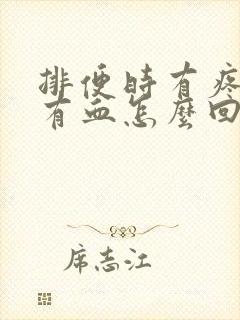 排便时有疼
有血怎麼回
席志江